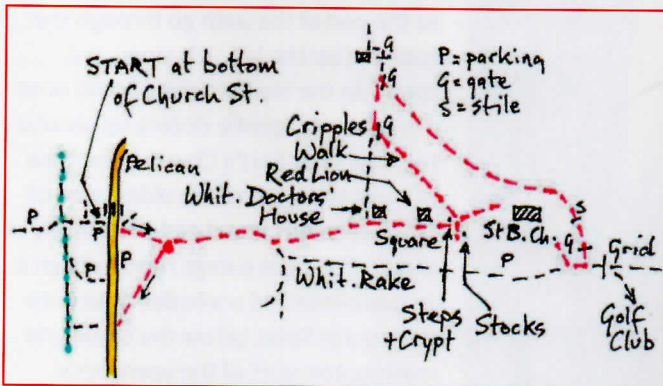 START at bottom
of Church St.
P = parking
G = gate
S = stile
G
G
G
Cripples
Walk
Pelican
Red Lion
Whit. Doctors'
House
P
P
P
P
Square
St B. Ch.
S
G
Grid
Whit. Rake
P
Steps
+ Crypt
Stocks
Golf
Club